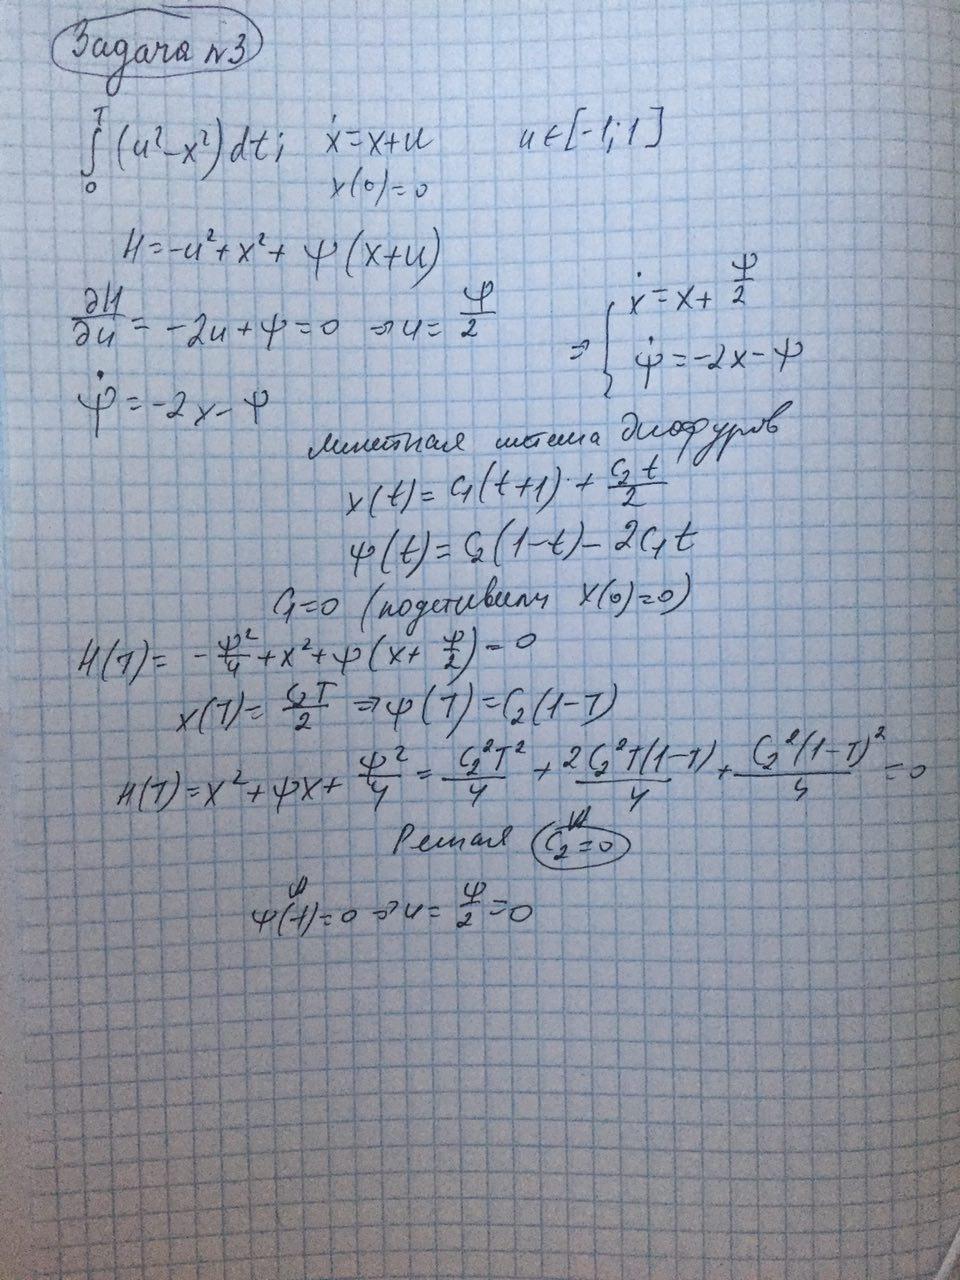 Задача N3
∫₀ᵀ (u²-x²)dt; ẋ=x+u u∈[-1;1]
x(0)=0
H=-u²+x²+ψ(x+u)
∂H/∂u = -2u+ψ=0 ⇒ u=ψ/2
⇒ { ẋ=x+ψ/2
ψ̇=-2x-ψ
ψ̇=-2x-ψ
диффуров
x(t)=C₁(t+1)+C₂t/2
ψ(t)=C₂(1-t)-2C₁t
C₁=0 (подставили x(0)=0)
H(T)= -ψ²/4+x²+ψ(x+ψ/2)=0
x(T)=C₂T/2 ⇒ ψ(T)=C₂(1-T)
H(T)=x²+ψx+ψ²/4=C₂²T²/4+2C₂²T(1-T)/4+C₂²(1-T)²/4=0
Решая C₂=0
⇓
ψ(t)=0 ⇒ u=ψ/2=0